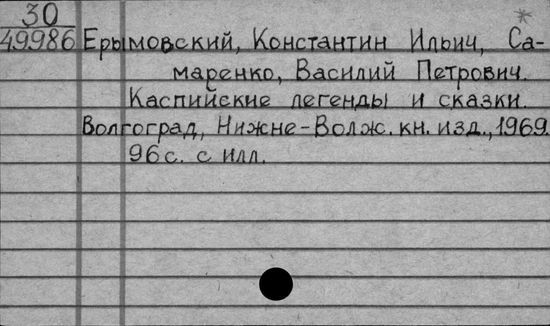 30
49986 Ерымовский, Константин Ильич, Са-
маренко, Василий Петрович.
Каспийские легенды и сказки.
Волгоград, Нижне-Волж. кн. изд., 1969.
96 с. с илл.